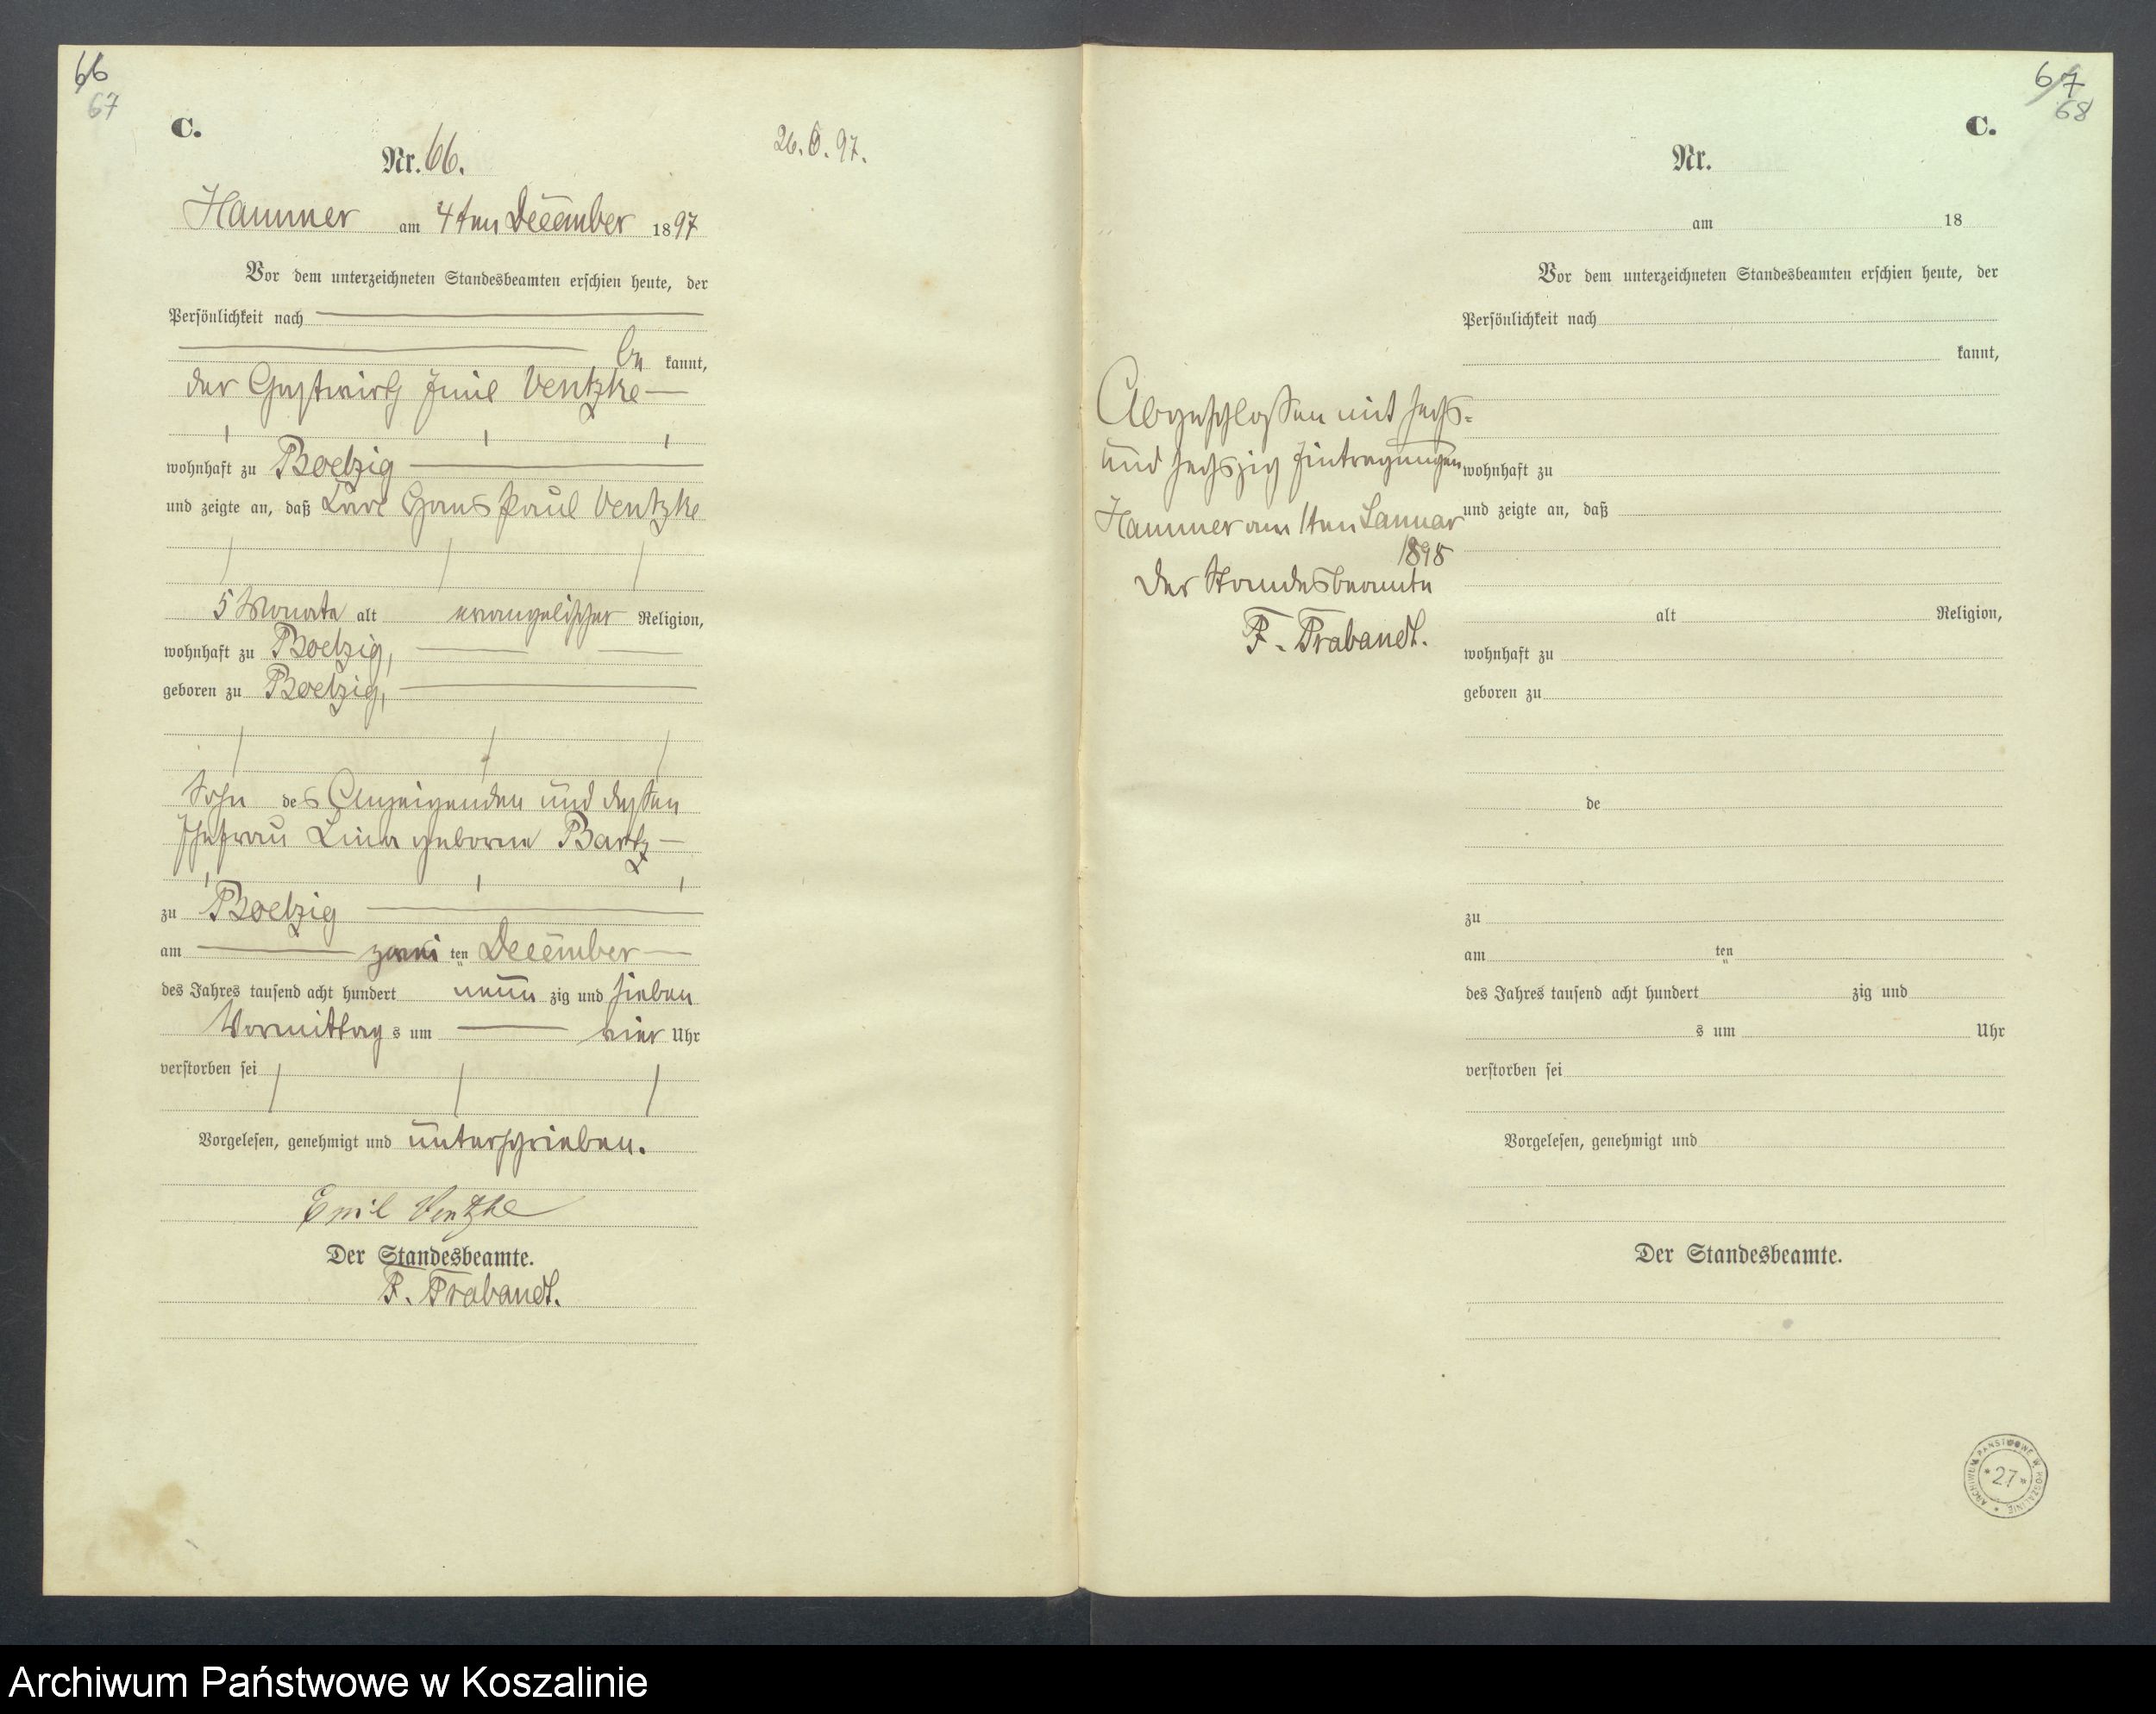 66
67
C.
Nr. 66.
26. 6. 97.
Hammer am 4ten December 1897
Vor dem unterzeichneten Standesbeamten erschien heute, der
Persönlichkeit nach
be kannt,
der Gastwirth Emil Ventzke
wohnhaft zu Boelzig
und zeigte an, daß Carl Hans Paul Ventzke
5 Monate alt evangelischer Religion,
wohnhaft zu Boelzig,
geboren zu Boelzig,
Sohn des Anzeigenden und dessen
Ehefrau Lina geborne Bartz
zu Boelzig
am zwei ten December
des Jahres tausend acht hundert neun zig und sieben
Vormittag s um vier Uhr
verstorben sei
Vorgelesen, genehmigt und unterschrieben.
Emil Ventzke
Der Standesbeamte.
F. Prabandt.
67
68
C.
Nr.
am 18
Vor dem unterzeichneten Standesbeamten erschien heute, der
Persönlichkeit nach
kannt,
Abgeschlossen mit sechs-
und sechszig Eintragungen
Hammer am 1ten Januar
1898
Der Standesbeamte
F. Prabandt.
wohnhaft zu
und zeigte an, daß
alt Religion,
wohnhaft zu
geboren zu
de
zu
am ten
des Jahres tausend acht hundert zig und
s um Uhr
verstorben sei
Vorgelesen, genehmigt und
Der Standesbeamte.
ARCHIWUM PAŃSTWOWE W KOSZALINIE
* 27 *
Archiwum Państwowe w Koszalinie